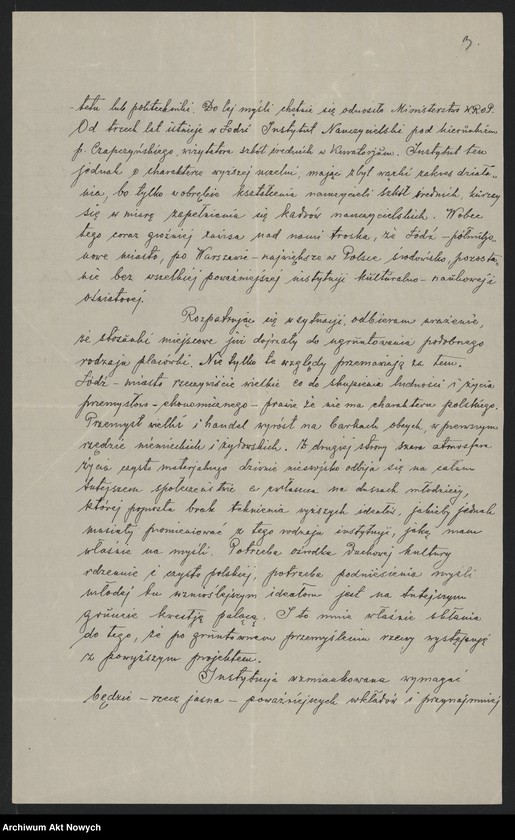 3.
-tetu lub politechniki. Do tej myśli chętnie się odnosiło Ministerstwo W.R.iO.P.
Od trzech lat istnieje w Łodzi Instytut Nauczycielski pod kierunkiem
p. Czapczyńskiego, wizytatora szkół średnich w Kuratorjum. Instytut ten
jednak o charakterze wyższej uczelni, mając zbyt wązki zakres działa-
nia, bo tylko w obrębie kształcenia nauczycieli szkół średnich, kurczy
się w miarę zapełniania się kadrów nauczycielskich. Wobec
tego coraz groźniej zawisa nad nami troska, że Łódź – półmiljo-
nowe miasto, po Warszawie – największe w Polsce środowisko, pozosta-
nie bez wszelkiej poważniejszej instytucji kulturalno-naukowej i
oświatowej.
Rozpatrując się w sytuacji, odbieram wrażenie,
że stosunki miejscowe już dojrzały do ugruntowania podobnego
rodzaju placówki. Nie tylko te względy przemawiają za tem.
Łódź – miasto rzeczywiście wielkie co do skupienia ludności i życia
przemysłowo-ekonomicznego – prawie że nie ma charakteru polskiego.
Przemysł wielki i handel wyrósł na barkach obcych, w pierwszym
rzędzie niemieckich i żydowskich. Z drugiej strony szara atmosfera
życia czysto materjalnego dziwnie nieswojsko odbija się na całem
tutejszem społeczeństwie a zwłaszcza na duszach młodzieży,
której poprostu brak tchnienia wyższych ideałów, jakieby jednak
musiały promieniować z tego rodzaju instytucji, jaką mam
właśnie na myśli. Potrzeba ośrodka duchowej kultury
rdzennie i czysto polskiej, potrzeba podniesienia myśli
młodej ku wznioślejszym ideałom jest na tutejszym
gruncie kwestją palącą. I to mnie właśnie skłania
do tego, że po gruntownem przemyśleniu rzeczy występuję
z powyższym projektem.
Instytucja wzmiankowana wymagać
będzie – rzecz jasna – poważniejszych wkładów i przynajmniej
Archiwum Akt Nowych